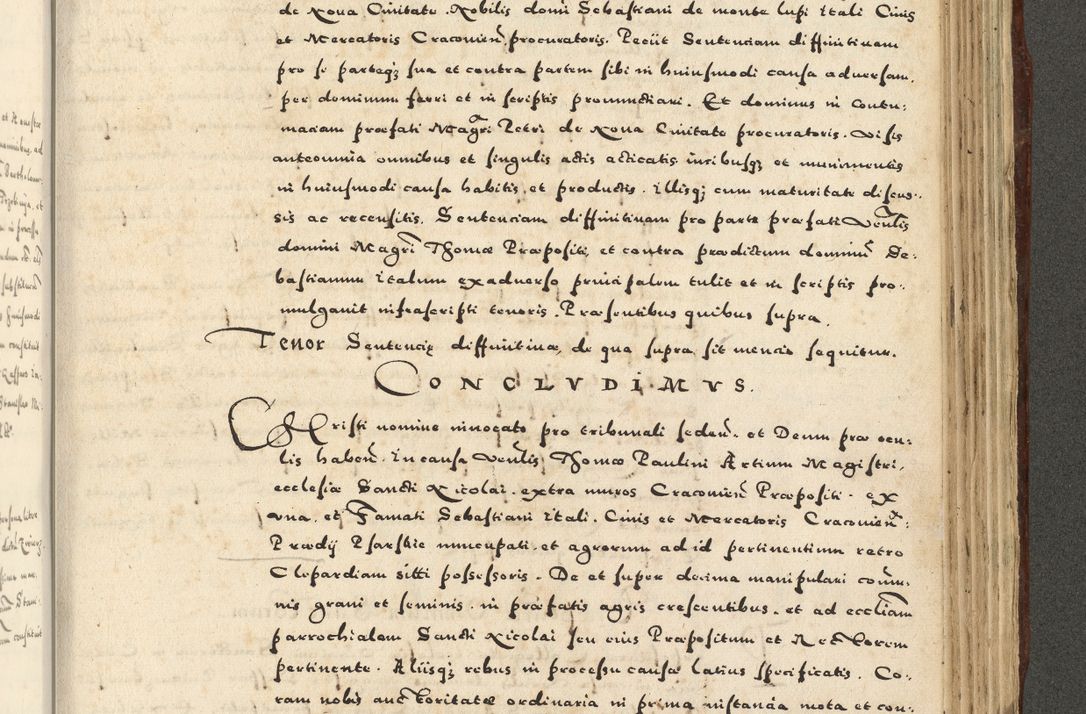 de Noua Ciuitate. Nobilis domi Sebastiani de monte lupi Itali Ciuis
et Mercatoris Cracouien̄ procuratoris. Petijt Sentenciam diffinitiuam
pro se parteq; sua et contra partem sibi in huiusmodi causa aduersam.
per dominum ferri et in scriptis pronunctiari. Et dominus in contu:
maciam præfati Magri Petri de Noua Ciuitate procuratoris. visis
anteomnia omnibus et singulis actis acticatis iuribusq; et munimentis
in huiusmodi causa habitis, et productis. illisq; cum maturitate discus:
sis ac recensitis. Sentenciam diffinitiuam pro parte præfati Venlis
domini Magri Thomæ Præpositi, et contra prædictum dominū Se:
bastianum Italum exaduerso principalem tulit et in scriptis pro:
mulgauit infrascripti tenoris. Præsentibus quibus supra.
Tenor Sentencię diffinitiuæ, de qua supra sit mencio sequitur.
CONCLVDIMVS.
CHristi nomine inuocato pro tribunali seden̄. et Deum præ ocu:
lis haben̄. In causa Venlis Thomæ Paulini Artium Magistri,
ecclesiæ Sancti Nicolai. extra muros Cracouien̄ Præpositi. ex
vna. et Famati Sebastiani Itali. Ciuis et Mercatoris Cracouien̄:
Prædij Psarskie nuncupati. et agrorum ad id pertinentium retro
Clepardiam siti possessoris. De et super decima manipulari com̄u:
nis grani et seminis. in præfatis agris crescentibus. et ad eccliam
parrochialem Sancti Nicolai seu eius Præpositum et Rectorem
pertinente. Alijsq; rebus in processu causæ latius specificatis. Co:
ram nobis auctoritate ordinaria in prima instancia mota et con: